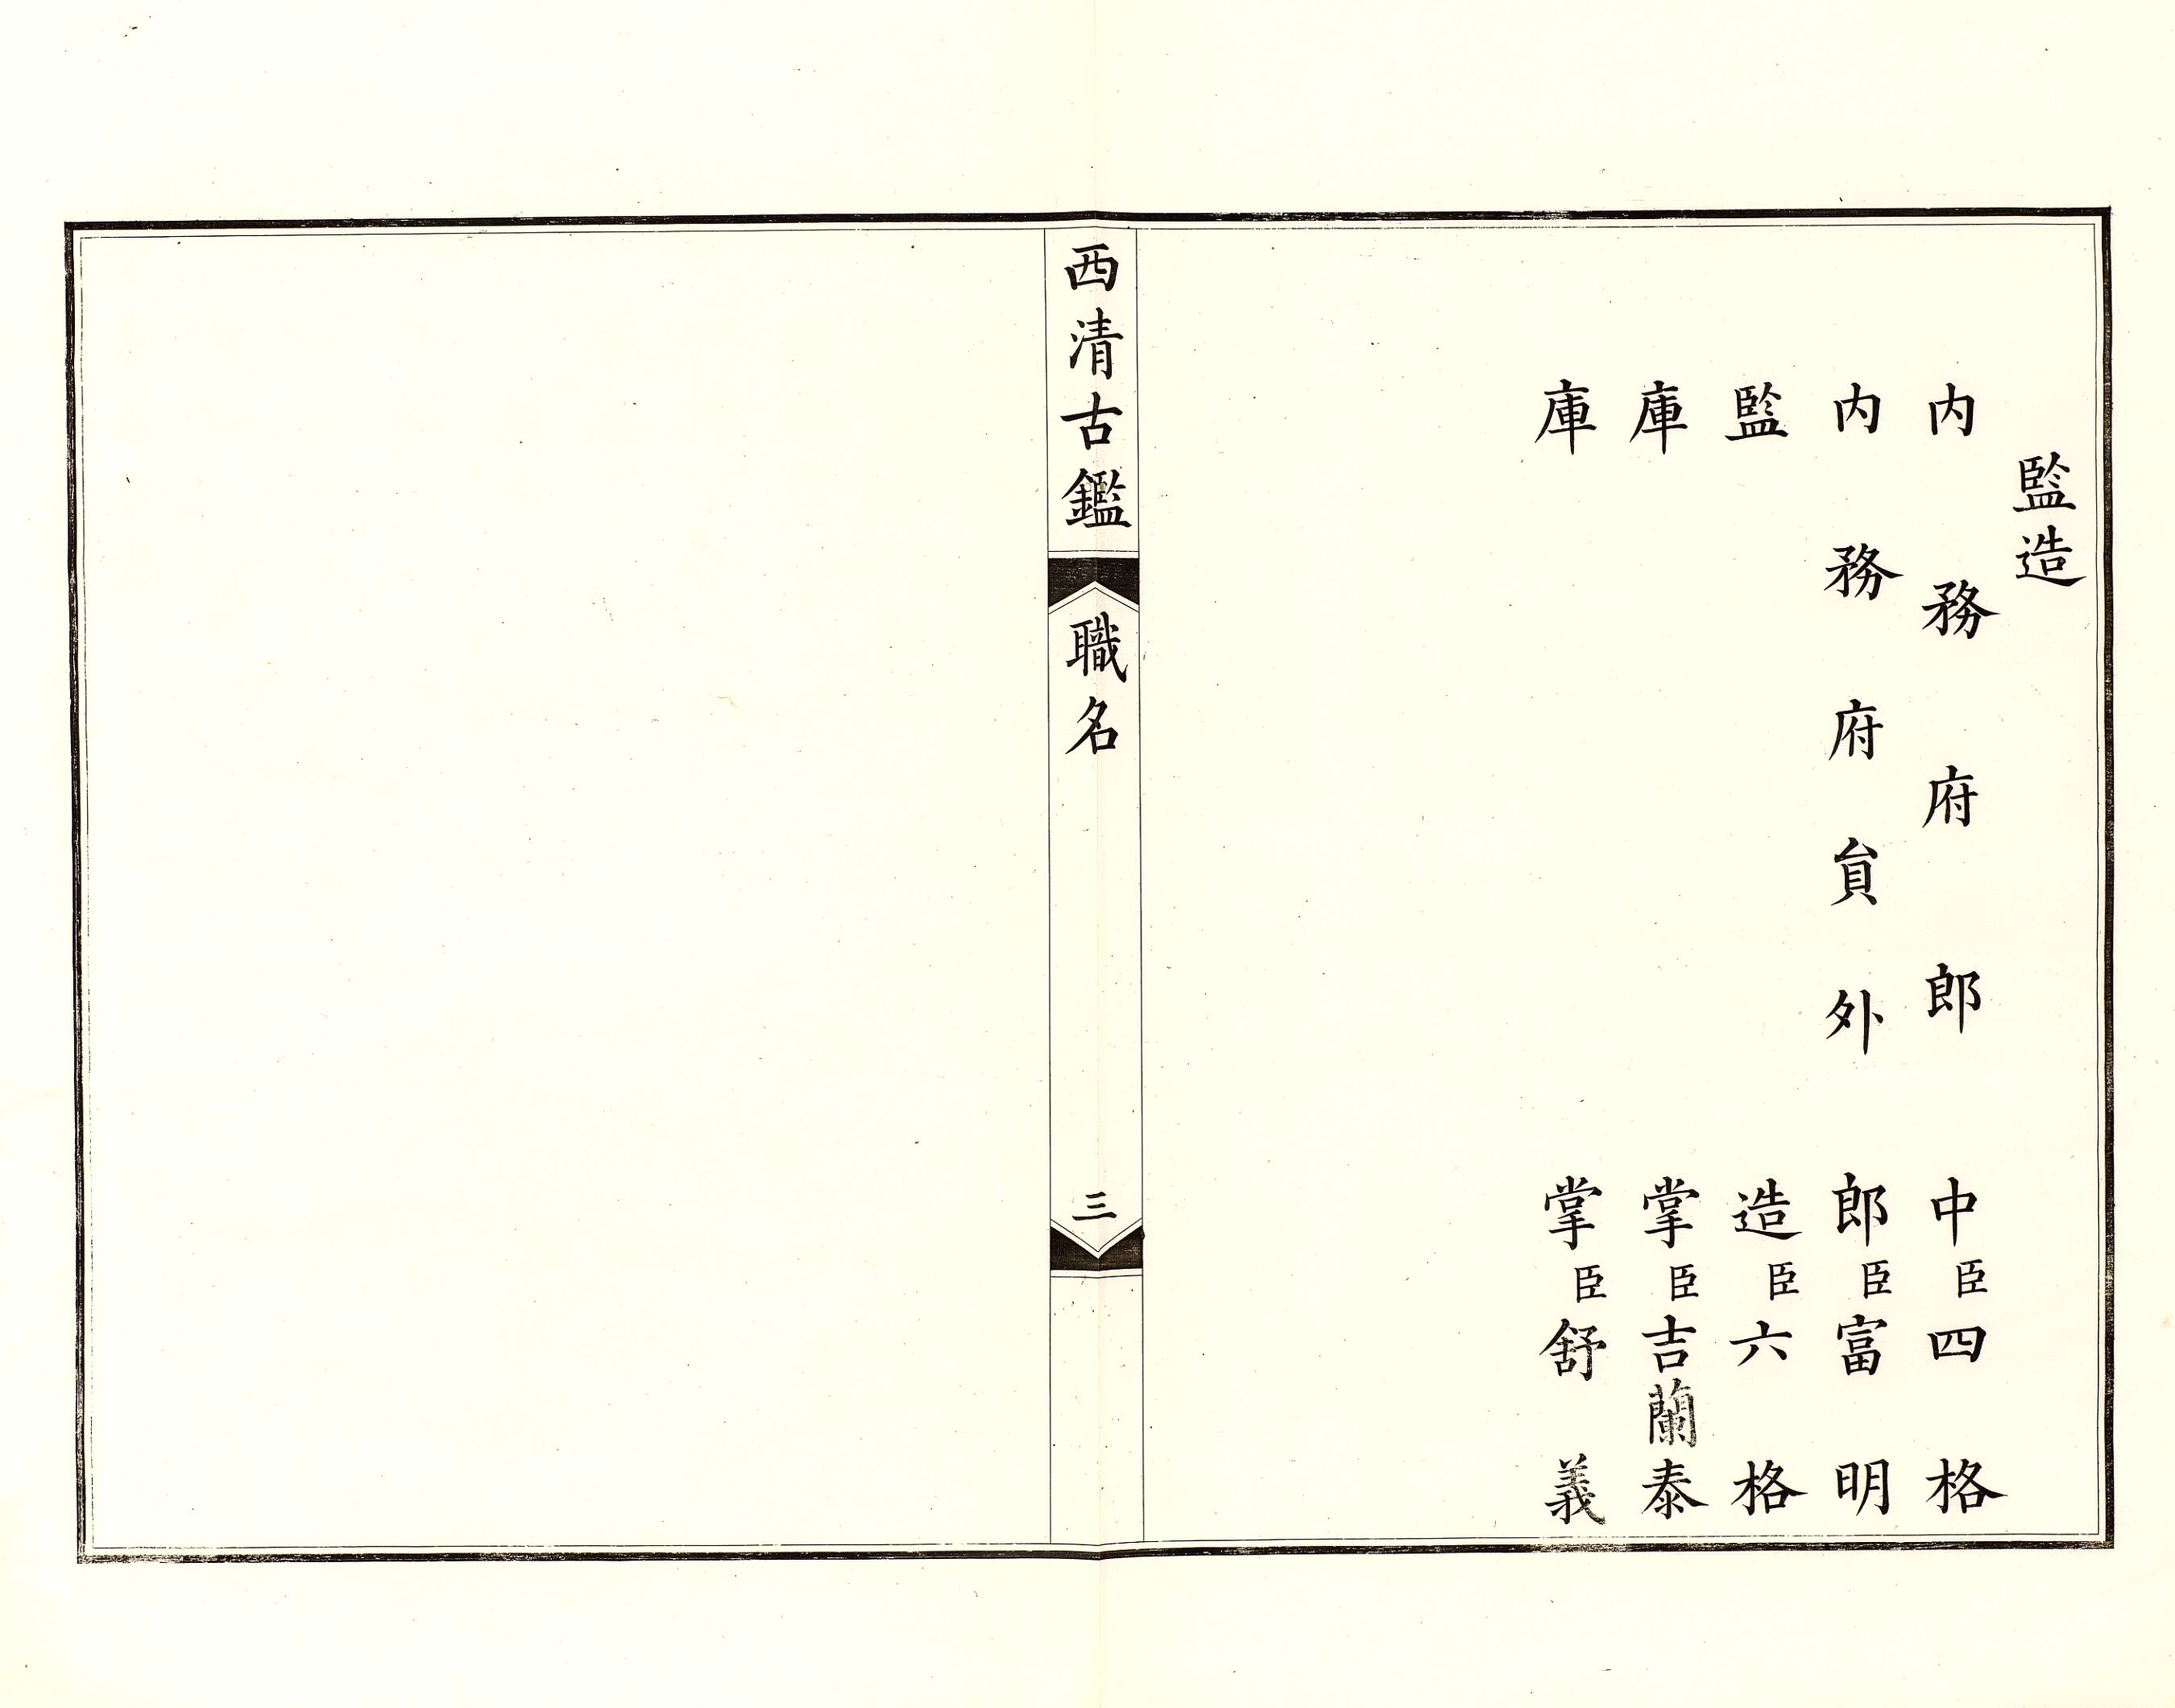 監造
内務府郎中臣四格
内務府貟外郎臣富明
監造臣六格
庫掌臣吉蘭泰
庫掌臣舒義
西清古鑑
職名
三